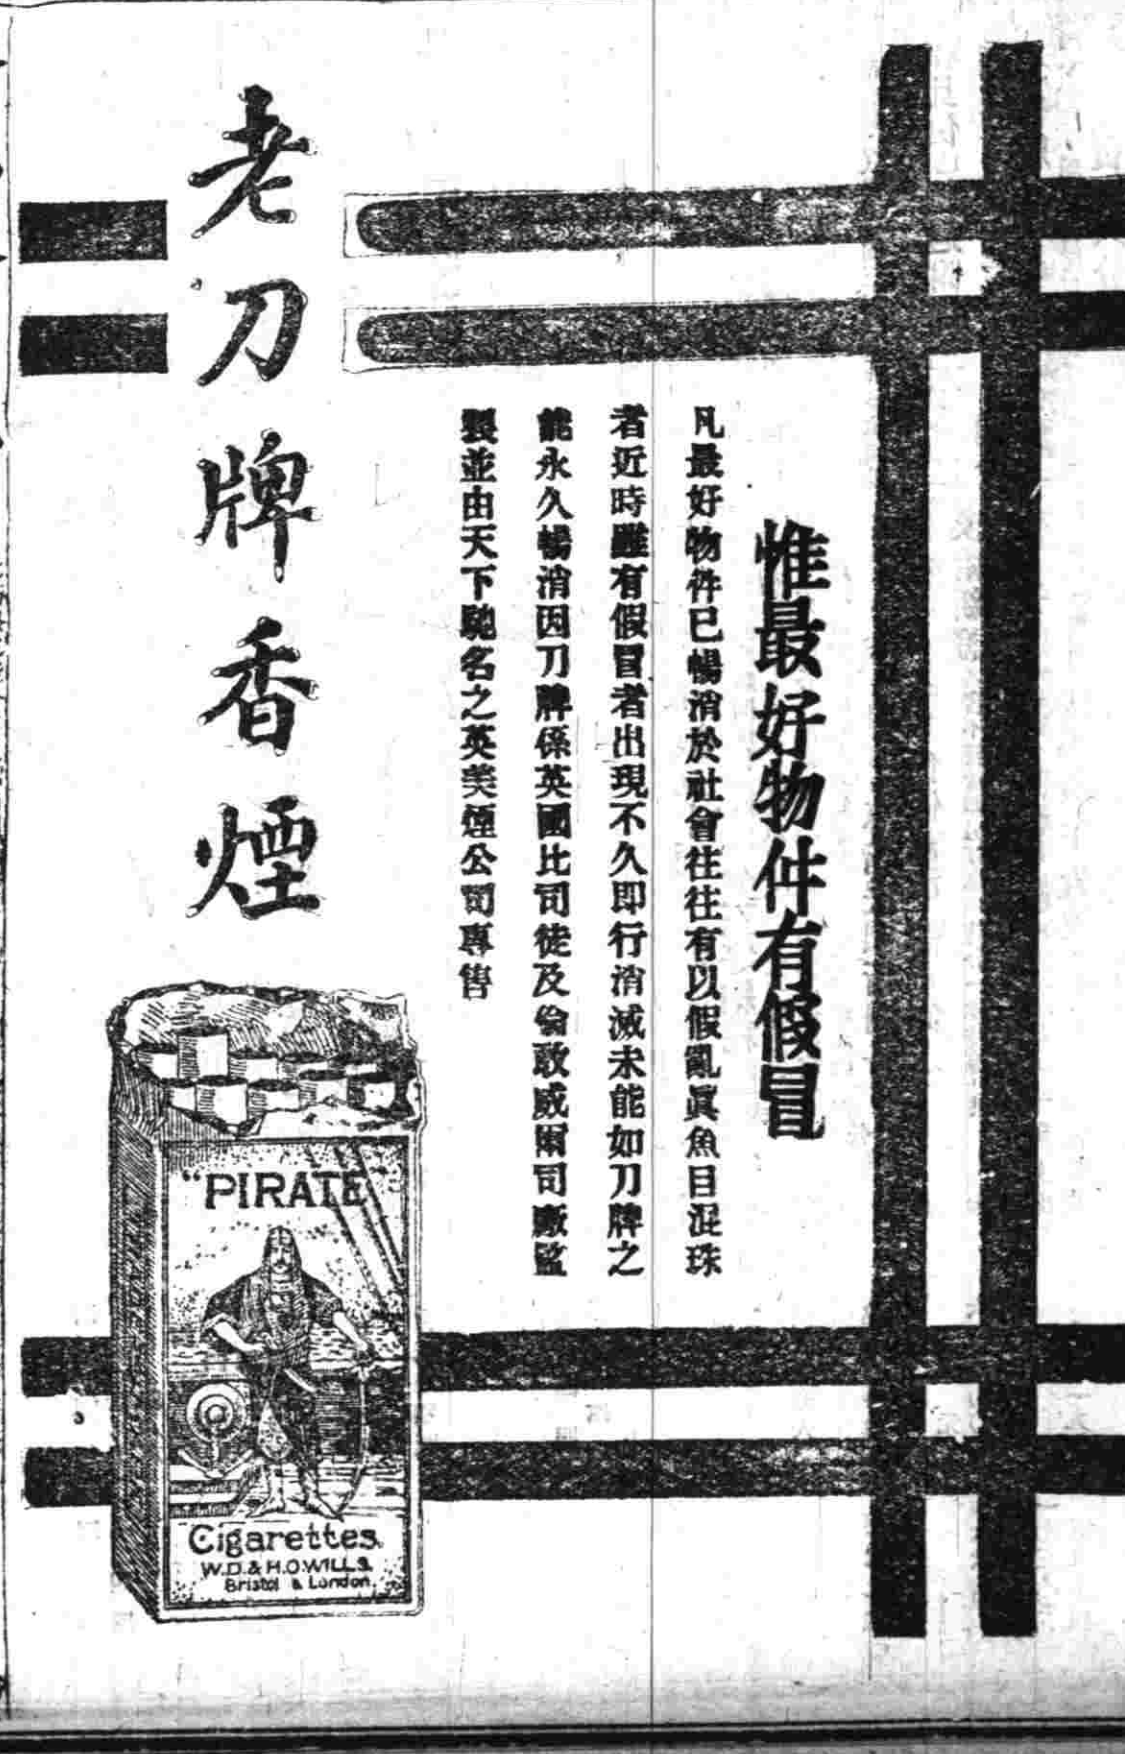 惟最好物件有假冒
凡最好物件已暢消於社會往往有以假亂眞魚目混珠
者近時雖有假冒者出現不久即行消滅未能如刀牌之
能永久暢消因刀牌係英國比司徒及倫敦威爾司廠監
製並由天下馳名之英美煙公司專售
老刀牌香煙
"PIRATE"
Cigarettes.
W.D.& H.O.WILLS.
Bristol & London.